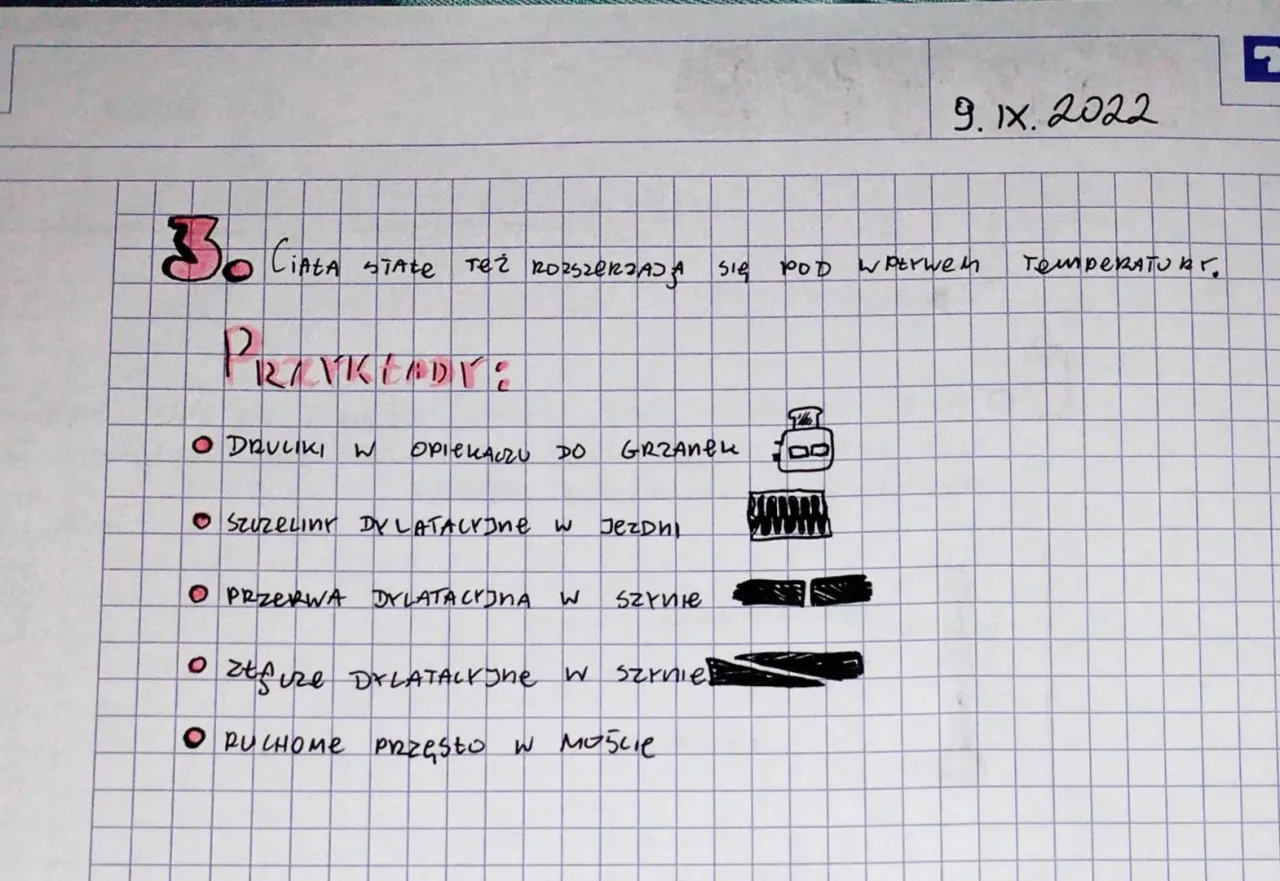 9. IX. 2022
3. Ciała stałe też rozszerzają się pod wpływem temperatury.
Przykłady:
DRUCIKI W OPIEKACZU DO GRZANEK
SZCZELINY DYLATACYJNE W JEZDNI
PRZERWA DYLATACYJNA W SZYNIE
ZŁĄCZE DYLATACYJNE W SZYNIE
RUCHOME PRZĘSŁO W MOŚCIE